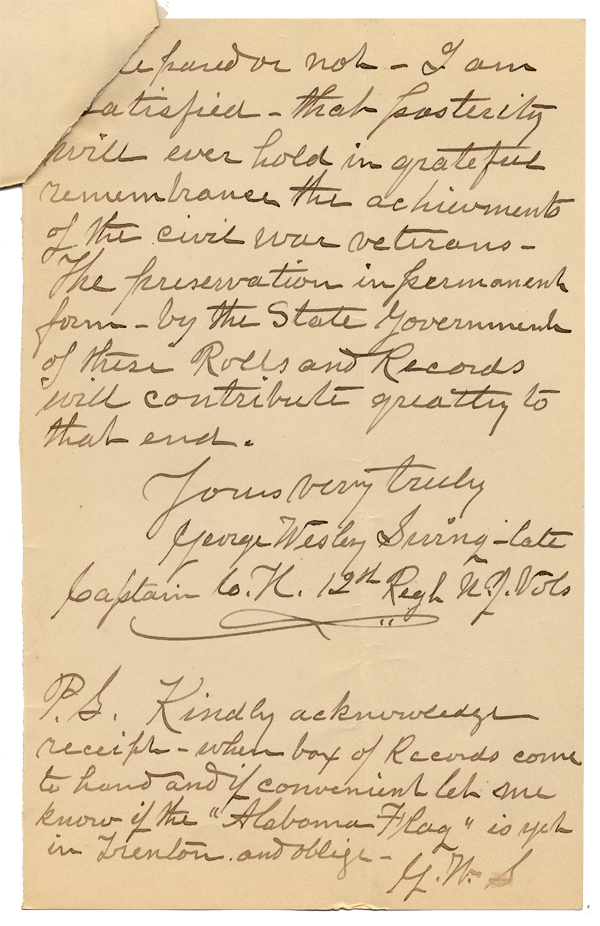 epared or not - I am
satisfied - that posterity
will ever hold in grateful
remembrance the achievments
of the civil war veterans -
The preservation in permanent
form - by the State Government
of these Rolls and Records
will contribute greatly to
that end.
Yours very truly
George Wesley Swing - late
Captain Co. K. 12th Regt N.J. Vols
P.S. Kindly acknowledge
receipt - when box of Records come
to hand and if convenient let me
know if the "Alabama Flag" is yet
in Trenton and oblige -
G. W. S